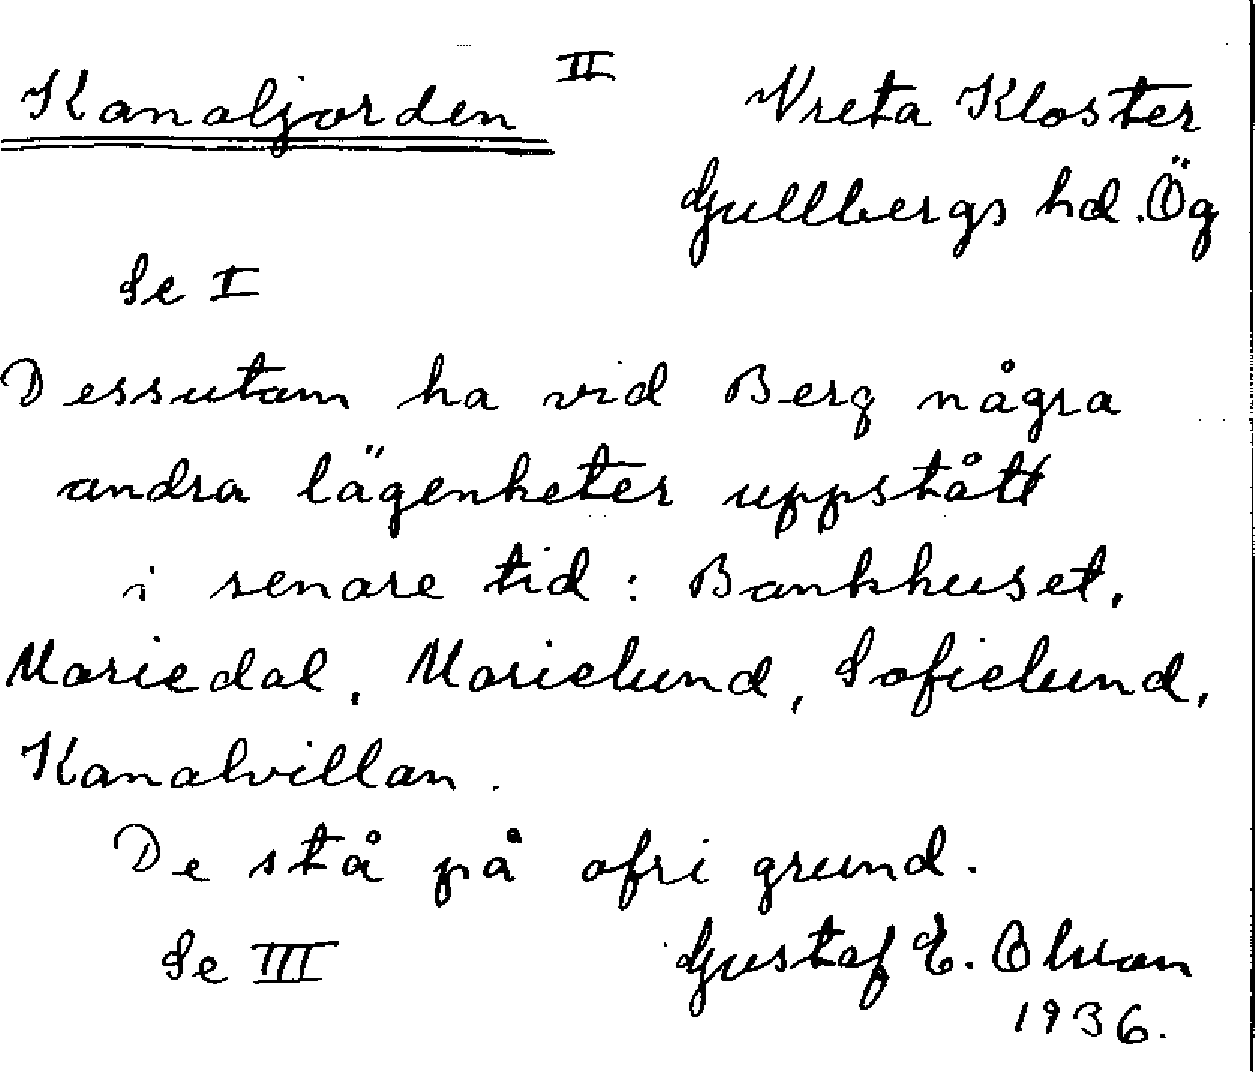 Kanaljorden II
Vreta Kloster
Gullbergs hd. Ög
Se I
Dessutom ha vid Berg några
andra lägenheter uppstått
i senare tid : Bankhuset,
Mariedal, Marielund, Sofielund,
Kanalvillan.
De stå på ofri grund.
Se III
Gustaf E.
1936.